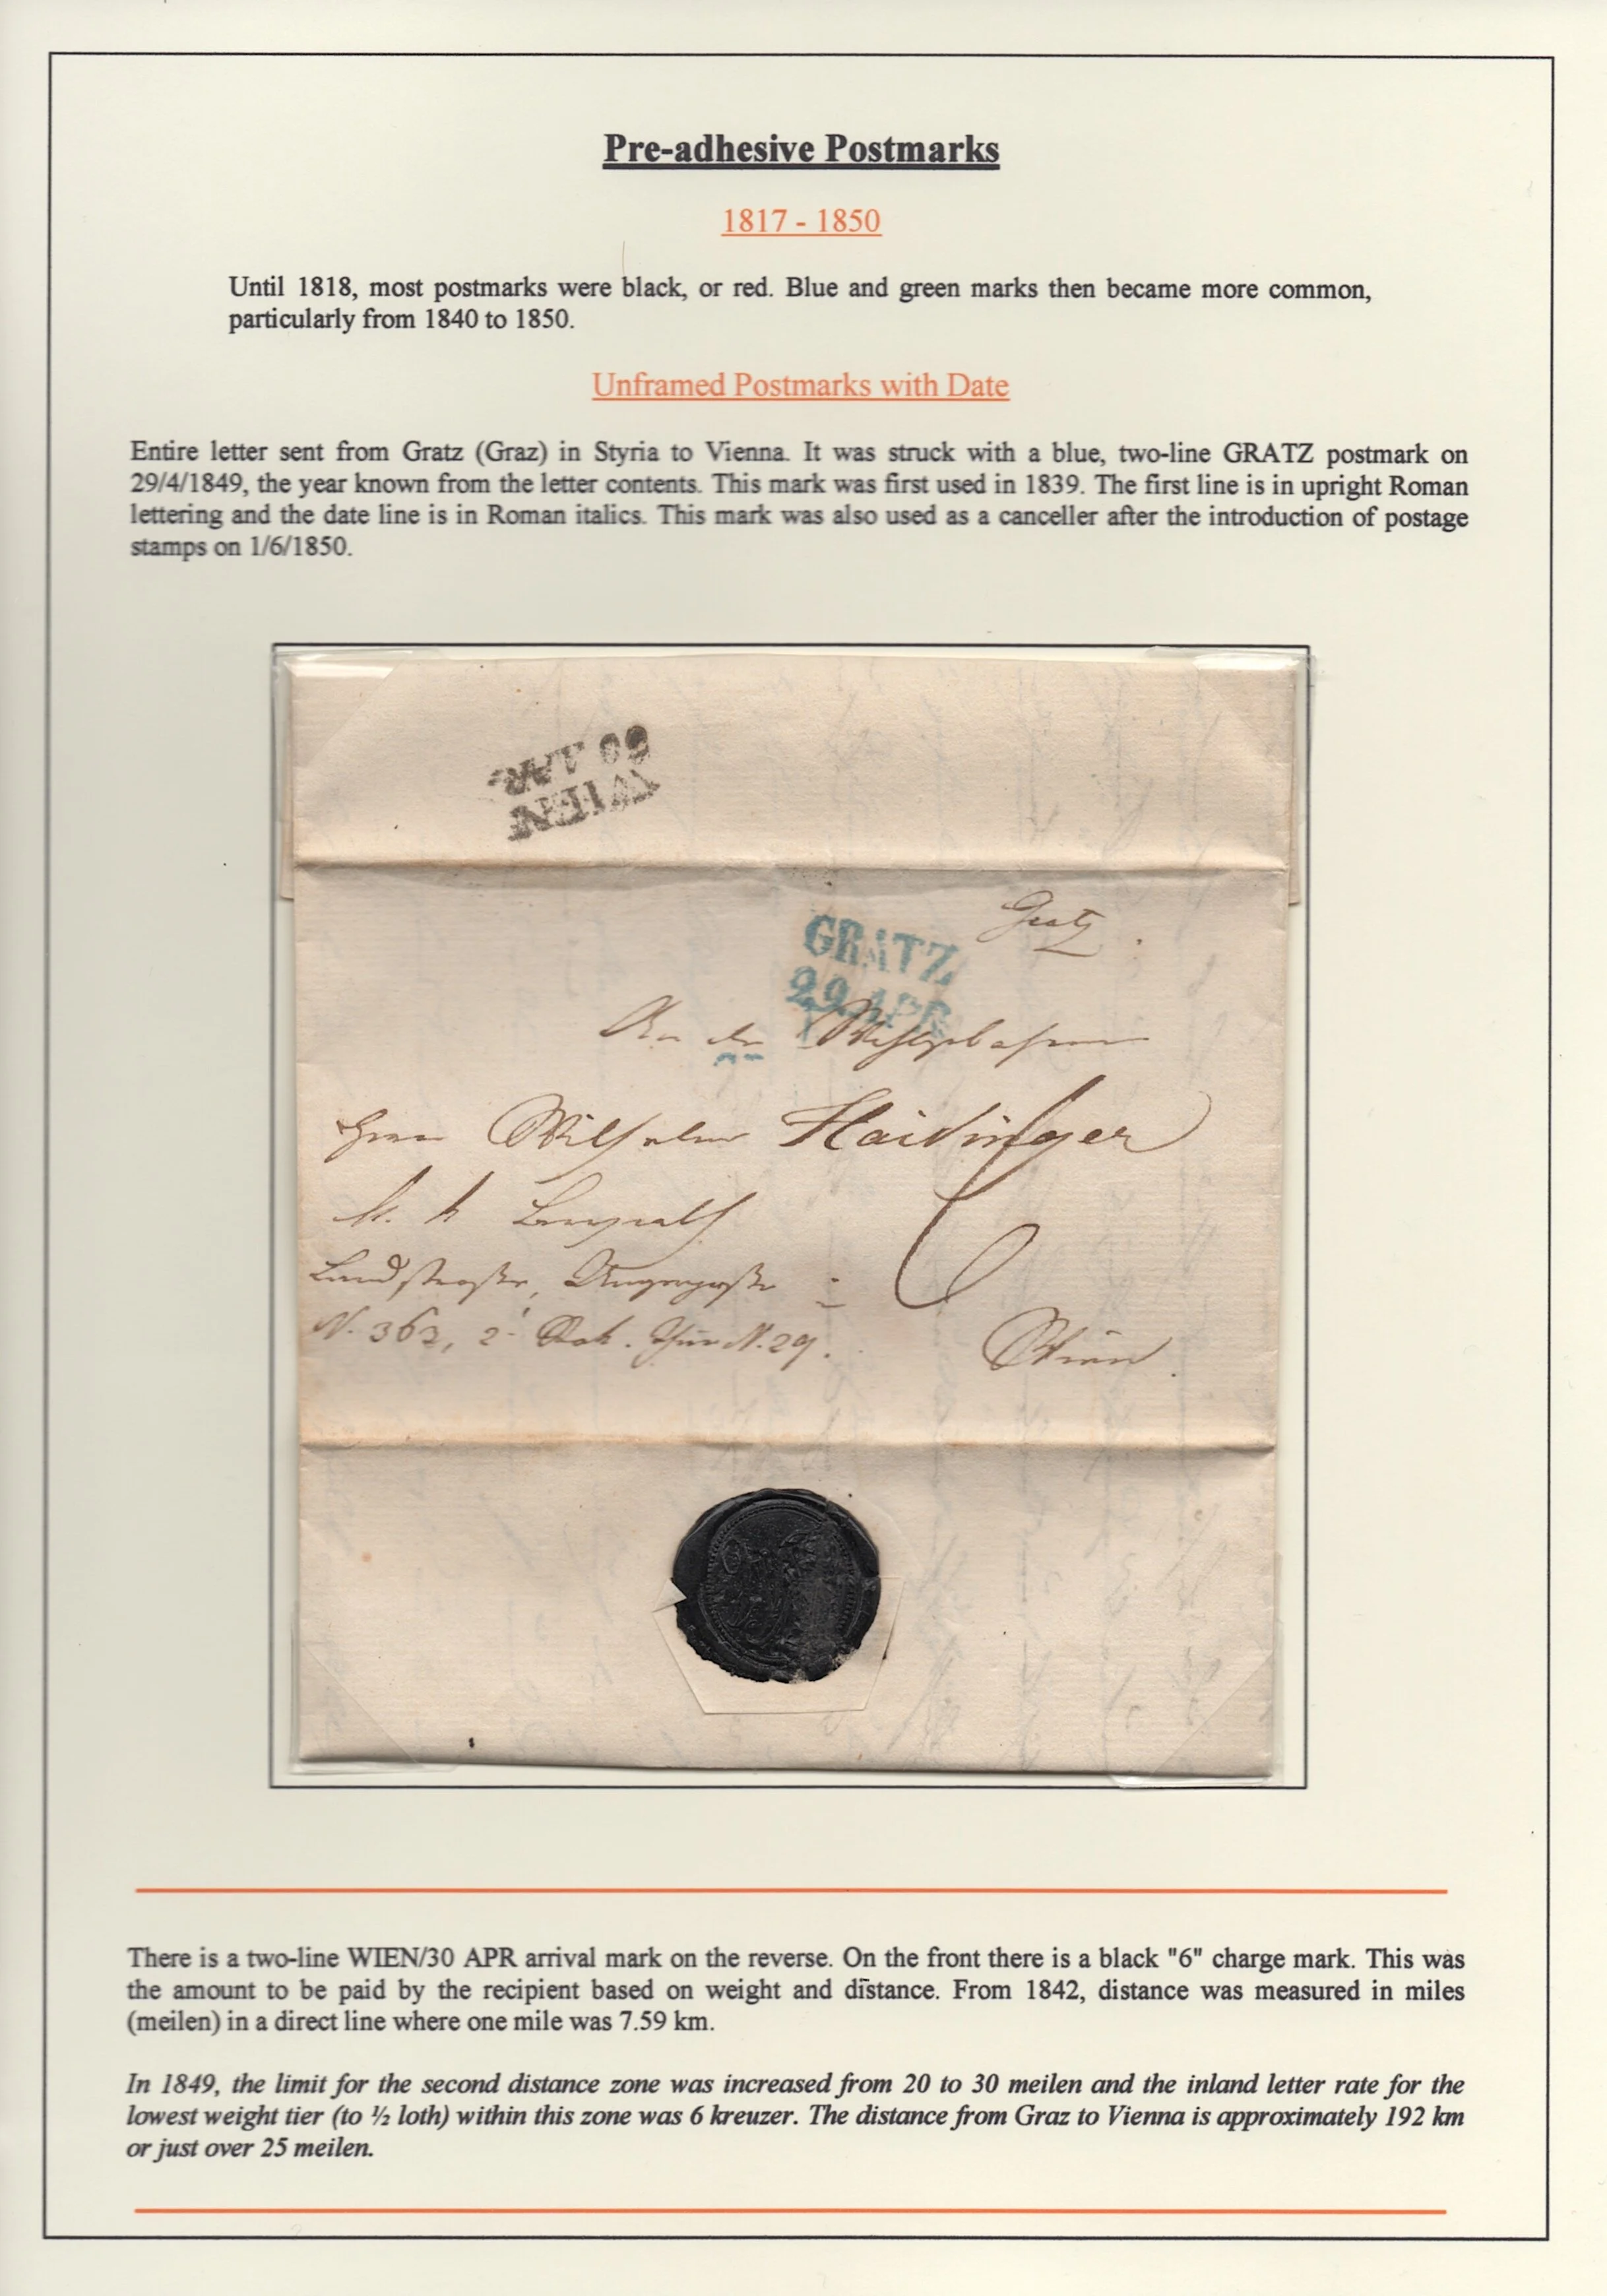 Pre-adhesive Postmarks
1817 - 1850
Until 1818, most postmarks were black, or red. Blue and green marks then became more common,
particularly from 1840 to 1850.
Unframed Postmarks with Date
Entire letter sent from Gratz (Graz) in Styria to Vienna. It was struck with a blue, two-line GRATZ postmark on
29/4/1849, the year known from the letter contents. This mark was first used in 1839. The first line is in upright Roman
lettering and the date line is in Roman italics. This mark was also used as a canceller after the introduction of postage
stamps on 1/6/1850.
WIEN
30 APR
Gratz
GRATZ
29 APR
An den
Herrn Wilhelm Haidinger
k. k. Bergrath
6
Landstrasse, Ungargasse
N. 363, 2 Stok. Thür N. 29.
Wien.
There is a two-line WIEN/30 APR arrival mark on the reverse. On the front there is a black "6" charge mark. This was
the amount to be paid by the recipient based on weight and distance. From 1842, distance was measured in miles
(meilen) in a direct line where one mile was 7.59 km.
In 1849, the limit for the second distance zone was increased from 20 to 30 meilen and the inland letter rate for the
lowest weight tier (to ½ loth) within this zone was 6 kreuzer. The distance from Graz to Vienna is approximately 192 km
or just over 25 meilen.